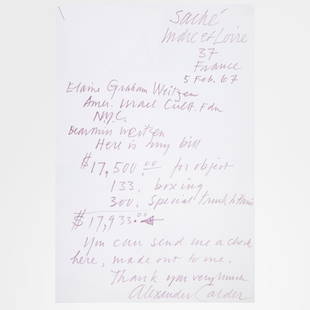 Saché
Indre et Loire
37
France
5 Feb. 67
Elaine Graham Weitzen
Amer. Israel Cult. Fdn
NYC.
Dear Miss Weitzen
Here is my bill
$17,500.00 for object
133. boxing
300. Special truck to Paris
$17,933.00
You can send me a check
here, made out to me.
Thank you very much
Alexander Calder